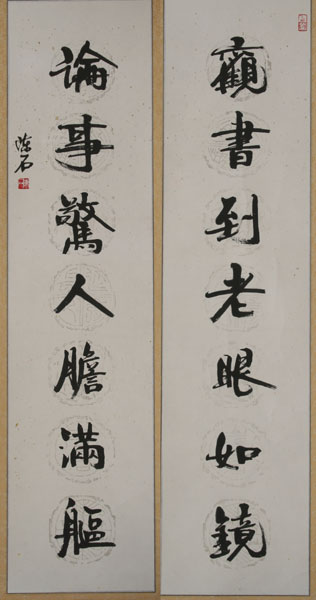 觀書到老眼如鏡
論事驚人膽滿軀
陈石